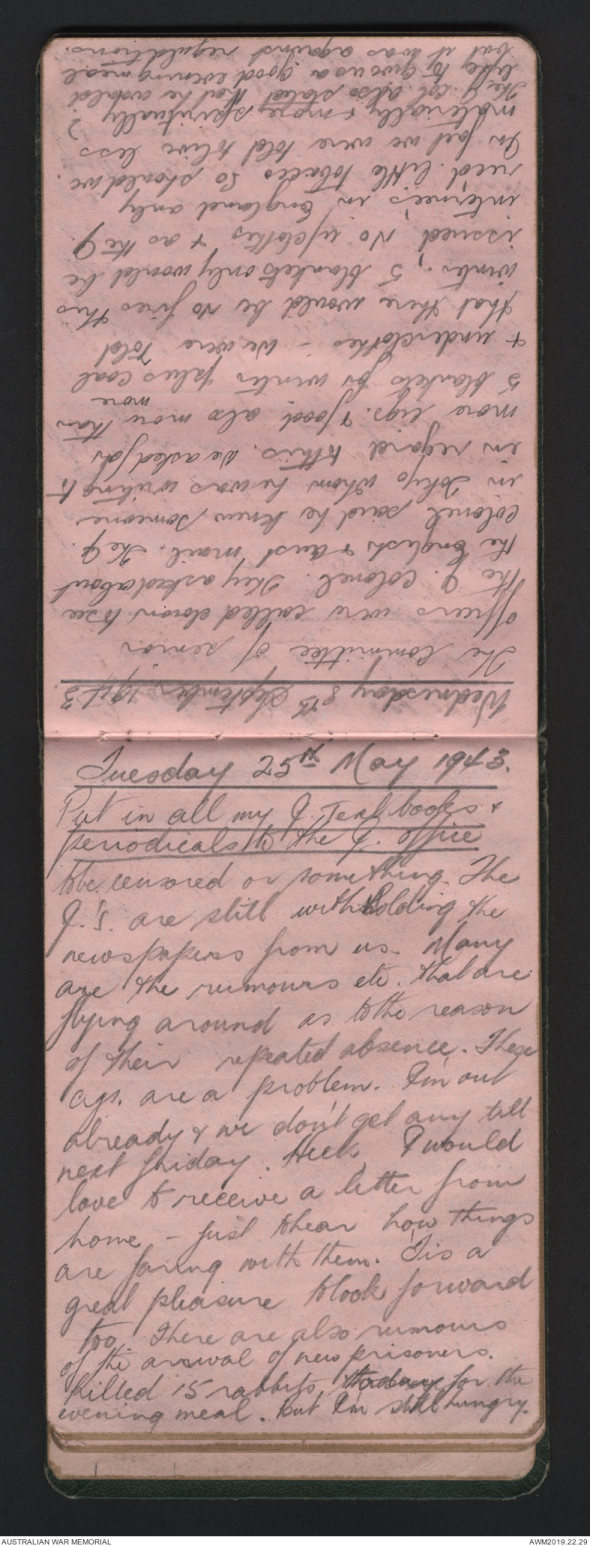 Wednesday 8th September 1943.
The Committee of senior
officers were called down to see
the J. Colonel. They asked about
the English & Aust mail. The J.
Colonel said he knew someone
in Tokyo whom he was writing to
in regard to this. We asked for
more cigs. & food, also more than
more
5 blankets for winter plus coal
& underclothes - we were told
that there would be no fires this
winter, 5 blankets only would be
issued, No u/clothes & as the J.
internee's in England only
need little tobacco so should we.
In fact we were told to live less
materially & more spiritually?
The J. Col. also stated that he would
like to give us a good evening meal
but it was against regulations.
Tuesday 25th May 1943.
Put in all my J. Text books &
periodicals to the J. office
to be censored or something. The
J.'s. are still withholding the
newspapers from us. Many
are the rumours etc. that are
flying around as to the reason
of their repeated absence. These
cigs. are a problem. I'm out
already & we don't get any till
next friday. Heck, I would
love to receive a letter from
home - just to hear how things
are faring with them. 'Tis a
great pleasure to look forward
too. There are also rumours
of the arrival of new prisoners.
Killed 15 rabbits, today for the
evening meal. but I'm still hungry.
AUSTRALIAN WAR MEMORIAL
AWM2019.22.29